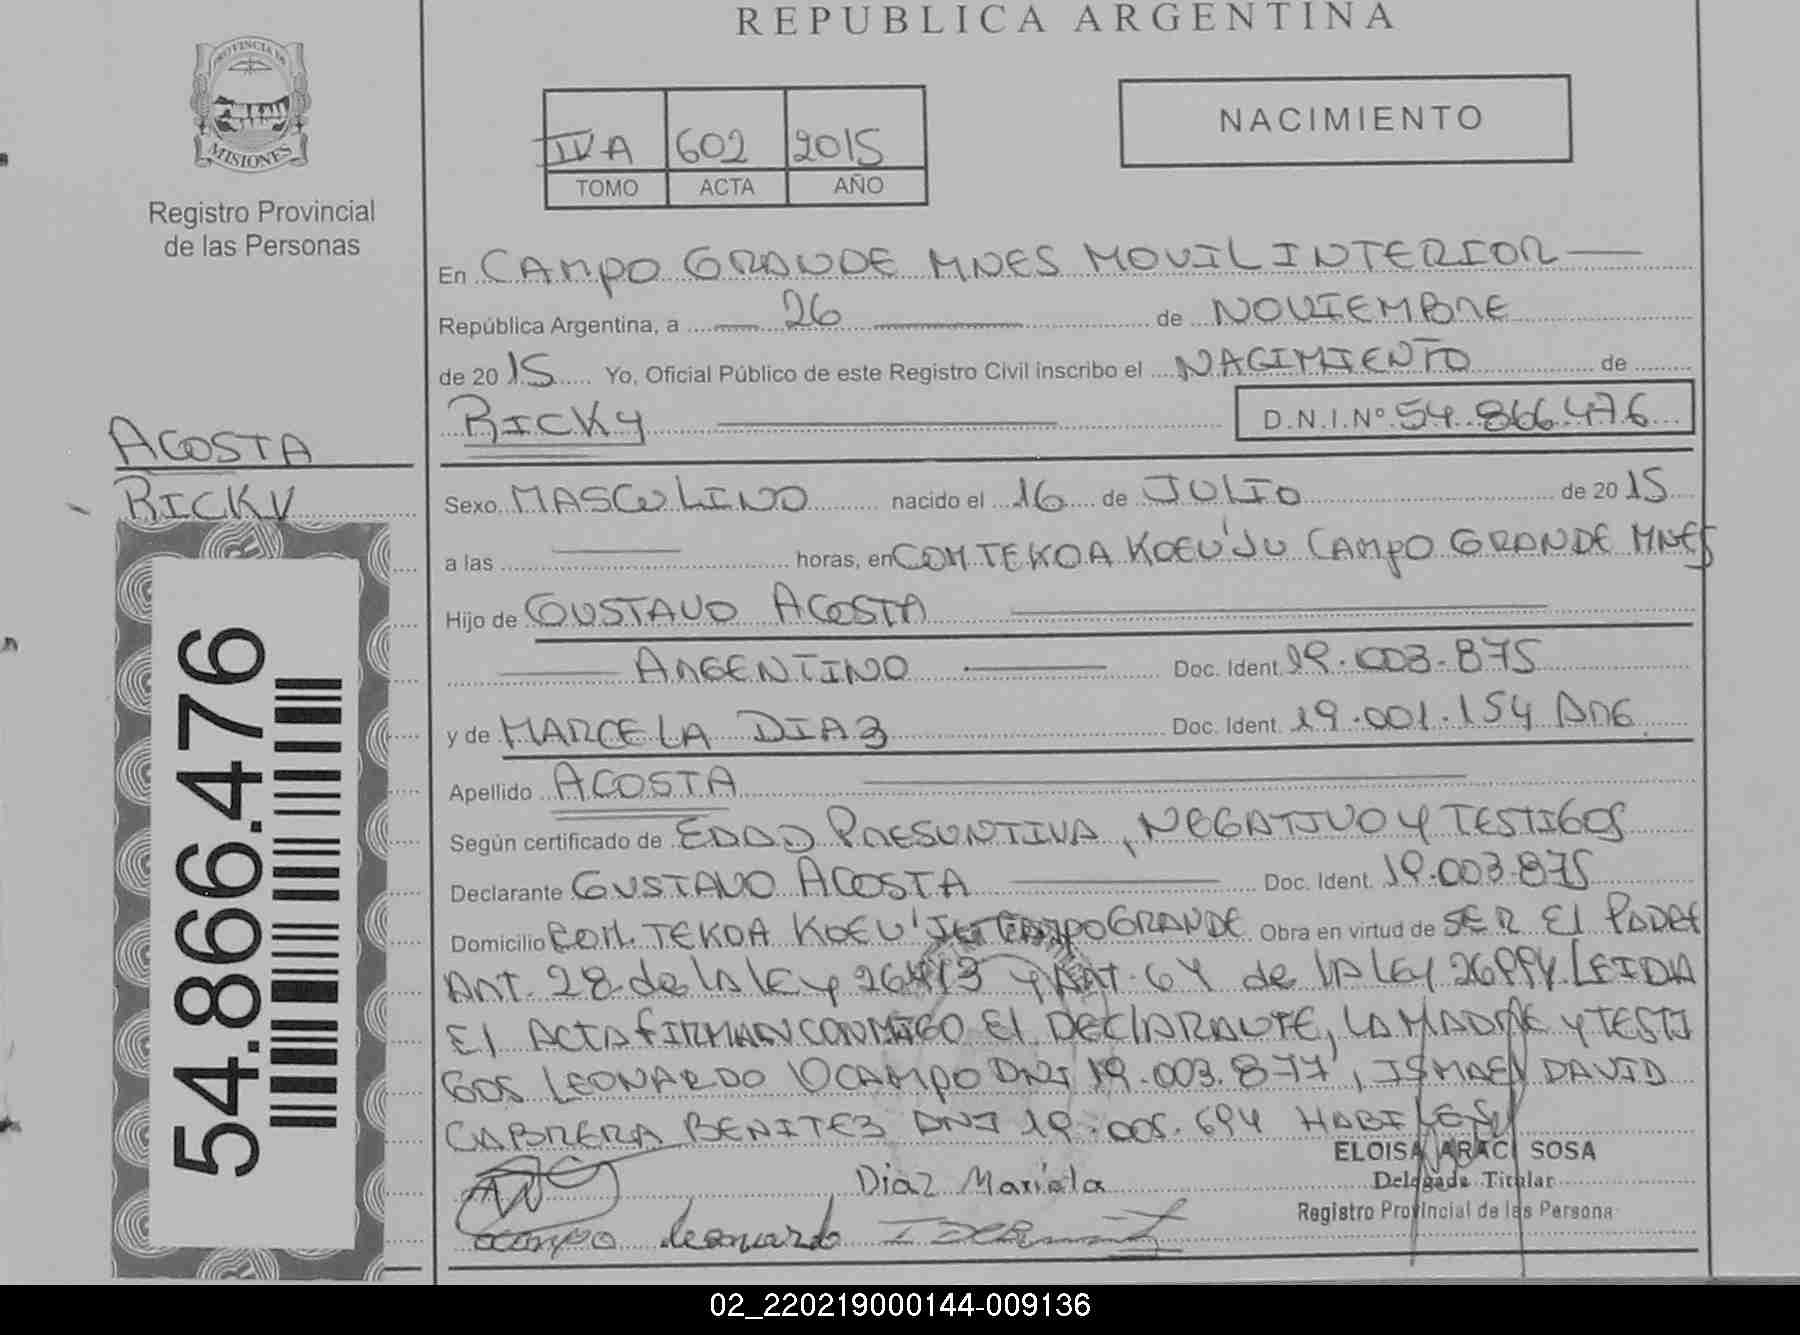 REPUBLICA ARGENTINA
PROVINCIA DE
MISIONES
Registro Provincial
de las Personas
IVA 602 2015
TOMO ACTA AÑO
NACIMIENTO
En CAMPO GRANDE MNES MOVIL INTERIOR
República Argentina, a 26 de NOVIEMBRE
de 2015 Yo, Oficial Público de este Registro Civil inscribo el NACIMIENTO de
RICKY D.N.I.Nº 54.866.476
ACOSTA
RICKY
Sexo MASCULINO nacido el 16 de JULIO de 2015
a las horas, en COM TEKOA KOEU'JU CAMPO GRANDE MNES
Hijo de GUSTAVO ACOSTA
ARGENTINO Doc. Ident. 19.003.875
y de MARCELA DIAZ Doc. Ident. 19.001.154 ARG
Apellido ACOSTA
Según certificado de EDAD PRESUNTIVA, NEGATIVO Y TESTIGOS
Declarante GUSTAVO ACOSTA Doc. Ident. 19.003.875
Domicilio COM. TEKOA KOEU'JU CAMPO GRANDE Obra en virtud de SER El PADRE
ART. 28 de lA lEy 26413 y ART. 64 de lA lEy 26994. LEIDA
El ACTA FIRMAN CONMIGO El DEClARANTE, LA MADRE y TESTI
GOS LEONARDO OCAMPO DNI 19.003.877, ISMAEL DAVID
CABRERA BENITEZ DNI 19.005.694 HABILES
54.866.476
ELOISA ARACI SOSA
Delegada Titular
Registro Provincial de las Persona
Diaz Mariela
ocampo leonardo
02_220219000144-009136